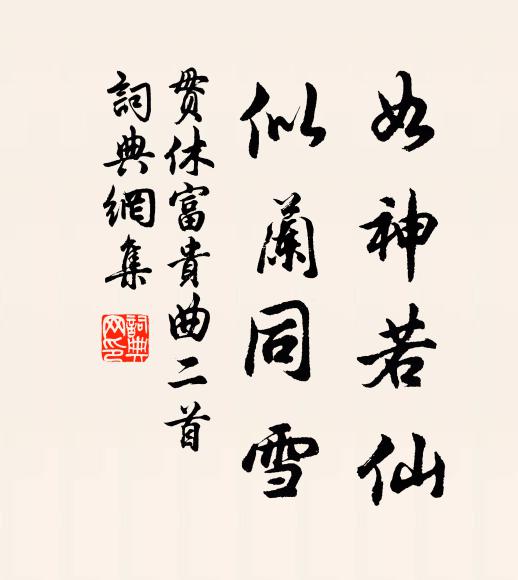 如神若仙
似蘭同雪
貫休富貴曲二首
詞典網集
詞典
网印